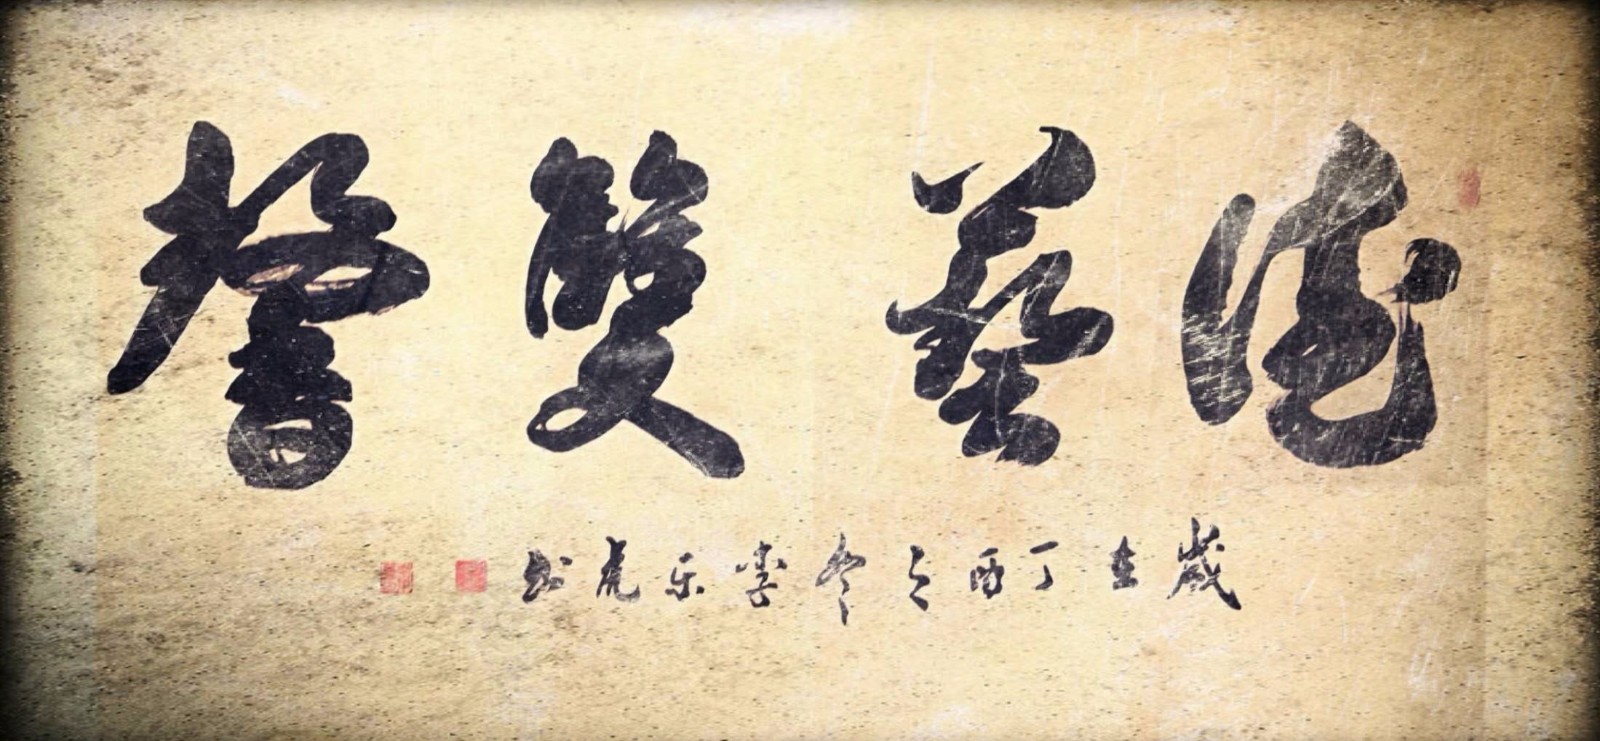 德藝雙馨
歲在丁酉之冬李乐虎书